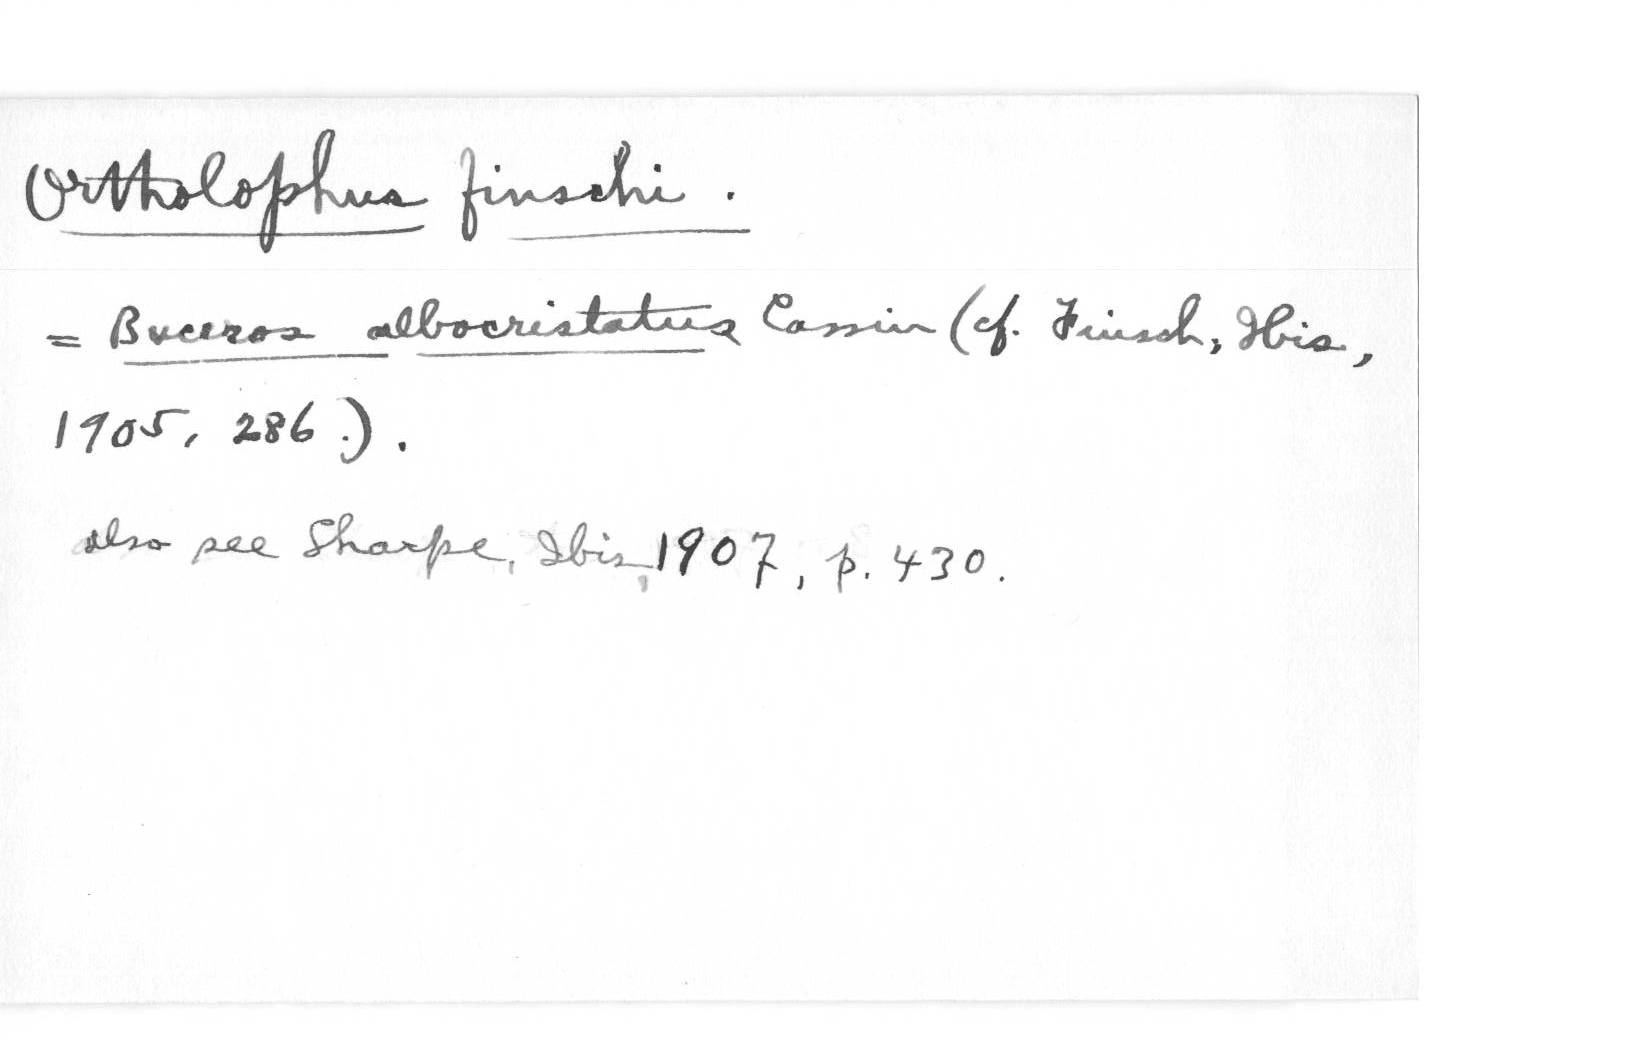 Ortholophus finschi.
= Buceros albocristatus Cassin (cf. Finsch, Ibis,
1905, 286.).
also see Sharpe, Ibis, 1907, p. 430.